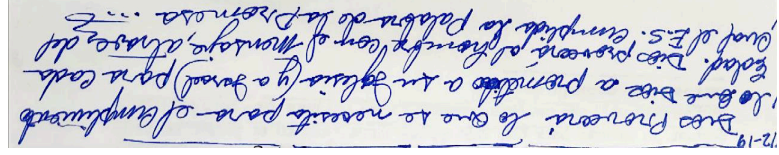 12-19
Dios Proveerá lo que se necesita para el cumplimiento
de lo que Dios a prometido a su Iglesia (y a Israel) para cada
Edad. Dios proveerá al hombre con el mensaje, atravez del
cual el E.S. cumplirá la Palabra de la Promesa ...